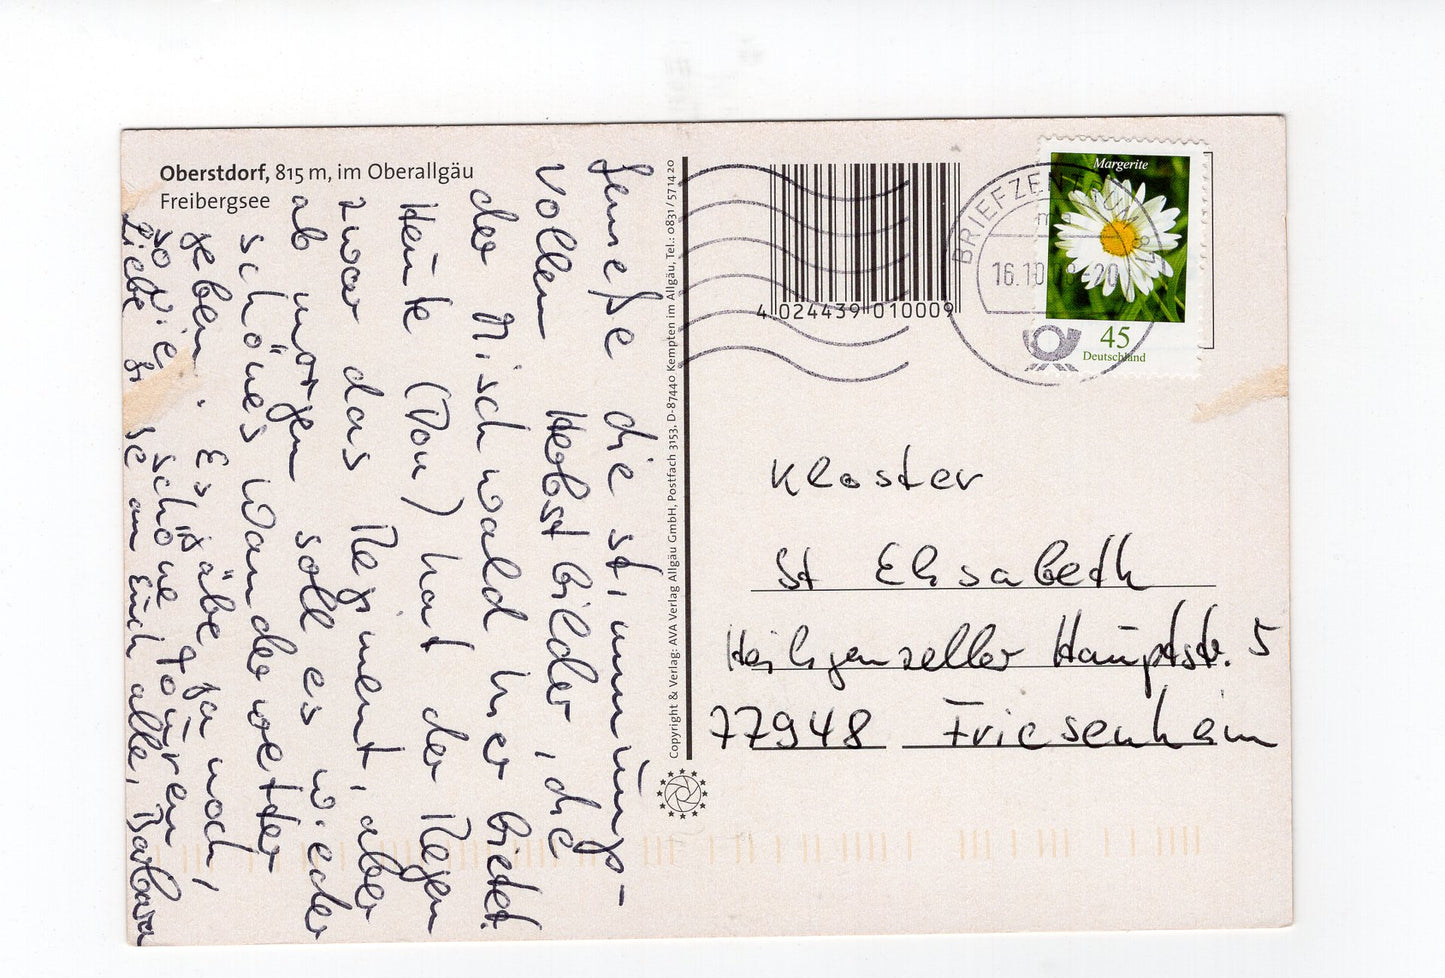 Oberstdorf, 815 m, im Oberallgäu
Freibergsee
genieße die stimmungs-
vollen Herbstbilder, die
der Mischwald hier bietet.
Heute (Don) hat der Regen
zwar das Regiment, aber
ab morgen soll es wieder
schönes Wanderwetter
geben. Es gäbe ja noch
so viele schöne Touren!
Liebe Grüße an Euch alle, Barbara
Copyright & Verlag: AVA Verlag Allgäu GmbH, Postfach 3153, D-87440 Kempten im Allgäu, Tel.: 0831/571420
4 024439 010009
BRIEFZENTRUM 87
16.10
-20
Margerite
45
Deutschland
Kloster
St Elisabeth
Heiligenzeller Hauptstr. 5
77948 Friesenheim